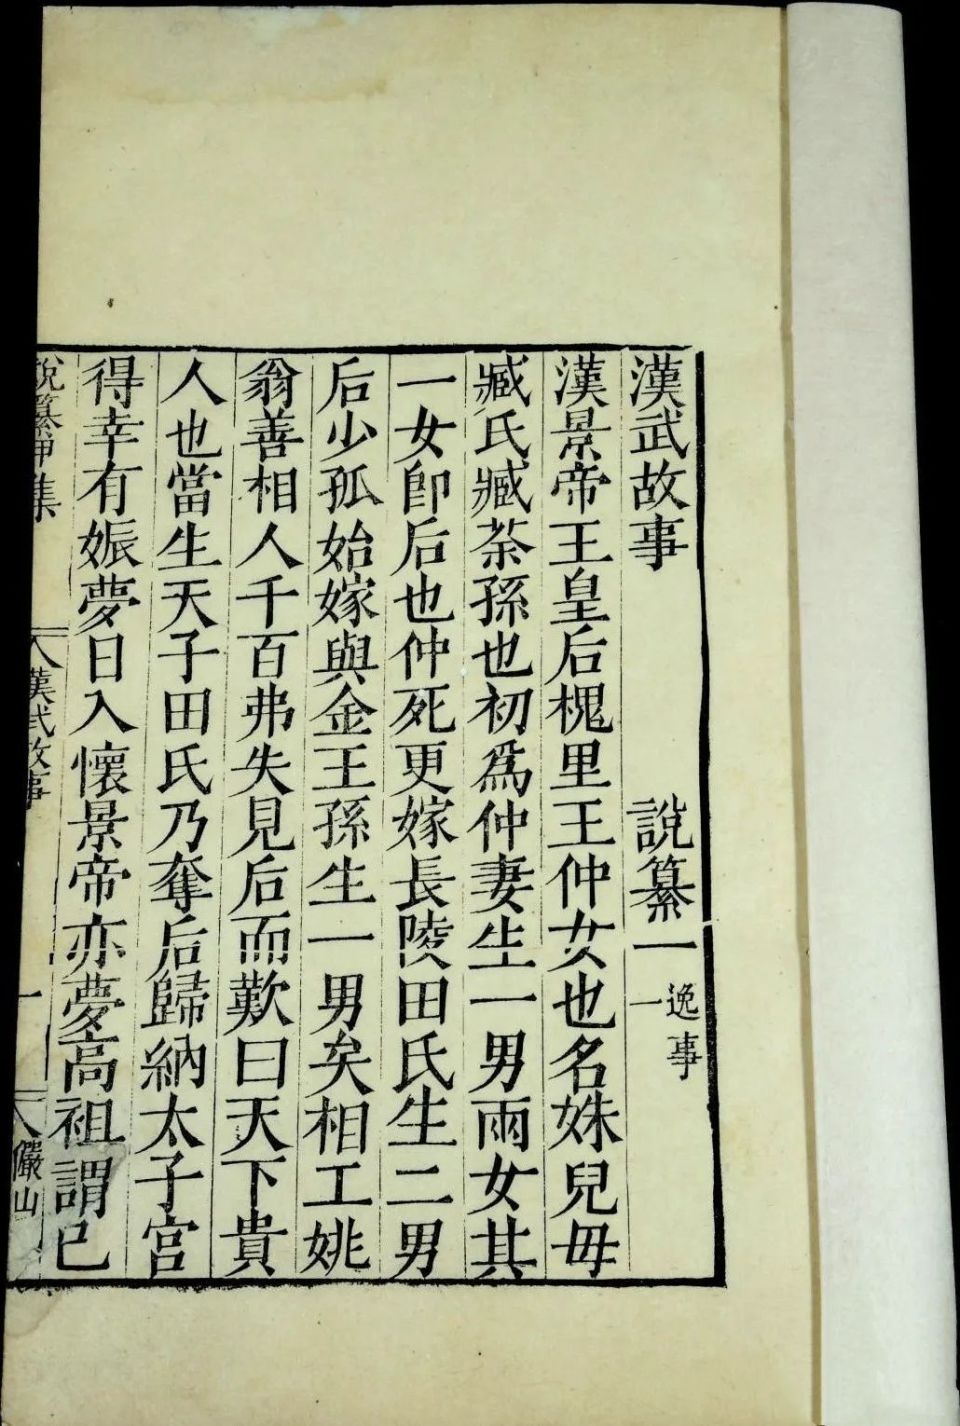 漢武故事 說纂一 逸事一
漢景帝王皇后槐里王仲女也名姝兒毋
臧氏臧荼孫也初爲仲妻生一男兩女其
一女卽后也仲死更嫁長陵田氏生二男
后少孤始嫁與金王孫生一男矣相工姚
翁善相人千百弗失見后而歎曰天下貴
人也當生天子田氏乃奪后歸納太子宮
得幸有娠夢日入懷景帝亦夢高祖謂己
說纂甲集 漢武故事 一 儼山